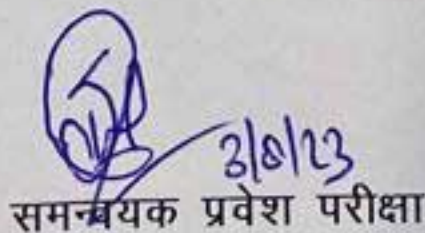 3/8/23
समन्वयक प्रवेश परीक्षा